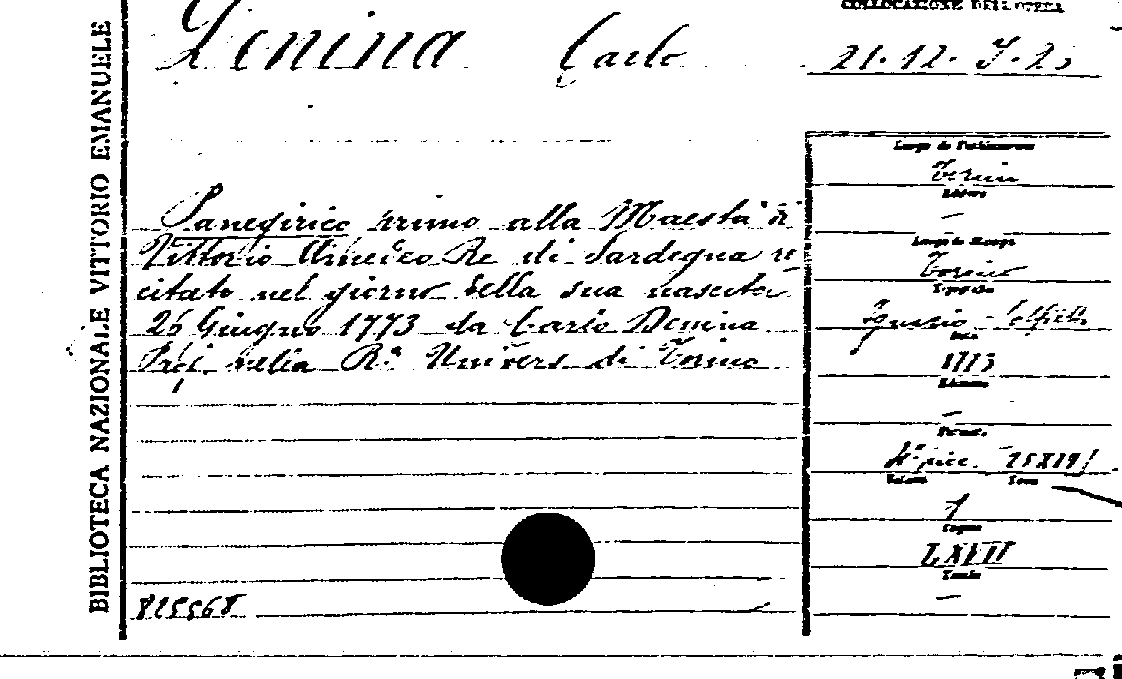 COLLOCAZIONE DELL'OPERA
Denina Carlo
21. 12. J. 25
BIBLIOTECA NAZIONALE VITTORIO EMANUELE
Panegirico primo alla Maestà di
Vittorio Amedeo Re di Sardegna re
citato nel giorno della sua nascita
26 Giugno 1773 da Carlo Denina
Prof. nella R.ª Univers. di Torino
825568
Luogo di Pubblicazione
Torino
Editore
—
Luogo di Stampa
Torino
Tipografia
Ignazio
Data
1773
Edizione
—
Formato
4° picc. 25X19
Volumi Tomo
1
Pagine
LXVII
Tavole
—